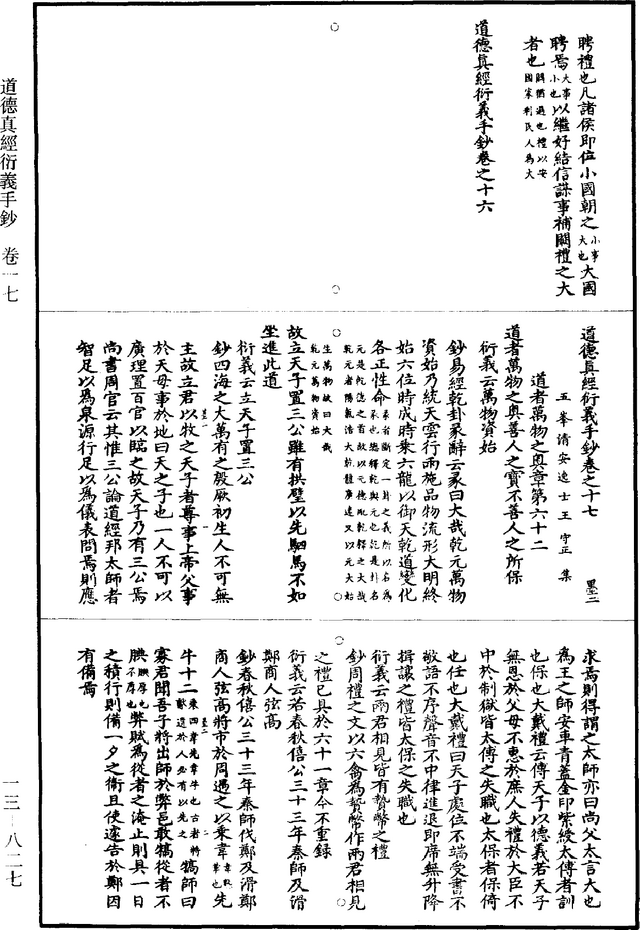 道德真經衍義手鈔　卷一七
一三—八二七
聘禮也凡諸侯即位小國朝之小事大也大國
聘焉大事小也以繼好結信謀事補闕禮之大
者也闕猶過也禮以安國家利民人為大
道德真經衍義手鈔卷之十六
道德真經衍義手鈔卷之十七　墨二
五峯清安逸士王守正集
道者萬物之奧章第六十二
道者萬物之奧善人之寶不善人之所保
衍義云萬物資始
鈔易經乾卦彖辭云彖曰大哉乾元萬物
資始乃統天雲行雨施品物流形大明終
始六位時成時乘六龍以御天乾道變化
各正性命彖者斷定一卦之義所以名為彖也總釋乾與元也乾是卦名元是乾德之首故以元德配乾釋之大哉乾元者陽氣浩大乾體廣遠又以元大始生萬物故曰大哉乾元萬物資始
故立天子置三公雖有拱璧以先駟馬不如
坐進此道
衍義云立天子置三公
鈔四海之大萬有之殷厥初生人不可無
主故立君以牧之天子者尊事上帝父事
於天母事於地曰天之子也一人不可以
廣理置百官以臨之故天子乃有三公焉
尚書周官云其惟三公論道經邦太師者
智足以為泉源行足以為儀表問焉則應
求焉則得謂之太師亦曰尚父太言大也
為王之師安車青蓋金印紫綬太傅者訓
也保也大戴禮云傅天子以德義若天子
無恩於父母不惠於庶人失禮於大臣不
中於制獄皆太傅之失職也太保者保倚
也任也大戴禮曰天子處位不端受書不
敬語不序聲音不中律進退即席無升降
揖讓之禮皆太保之失職也
衍義云兩君相見皆有贄幣之禮
鈔周禮之文以六禽為贄幣作兩君相見
之禮已具於六十一章今不重錄
衍義云若春秋僖公三十三年秦師及滑
鄭商人弦高
鈔春秋僖公三十三年秦師伐鄭及滑鄭
商人弦高將市於周遇之以乘韋先
牛十二犒師曰
寡君聞吾子將出師於弊邑敢犒從者不
腆弊賦為從者之淹止則具一日
之積行則備一夕之衛且使遽告於鄭因
有備焉